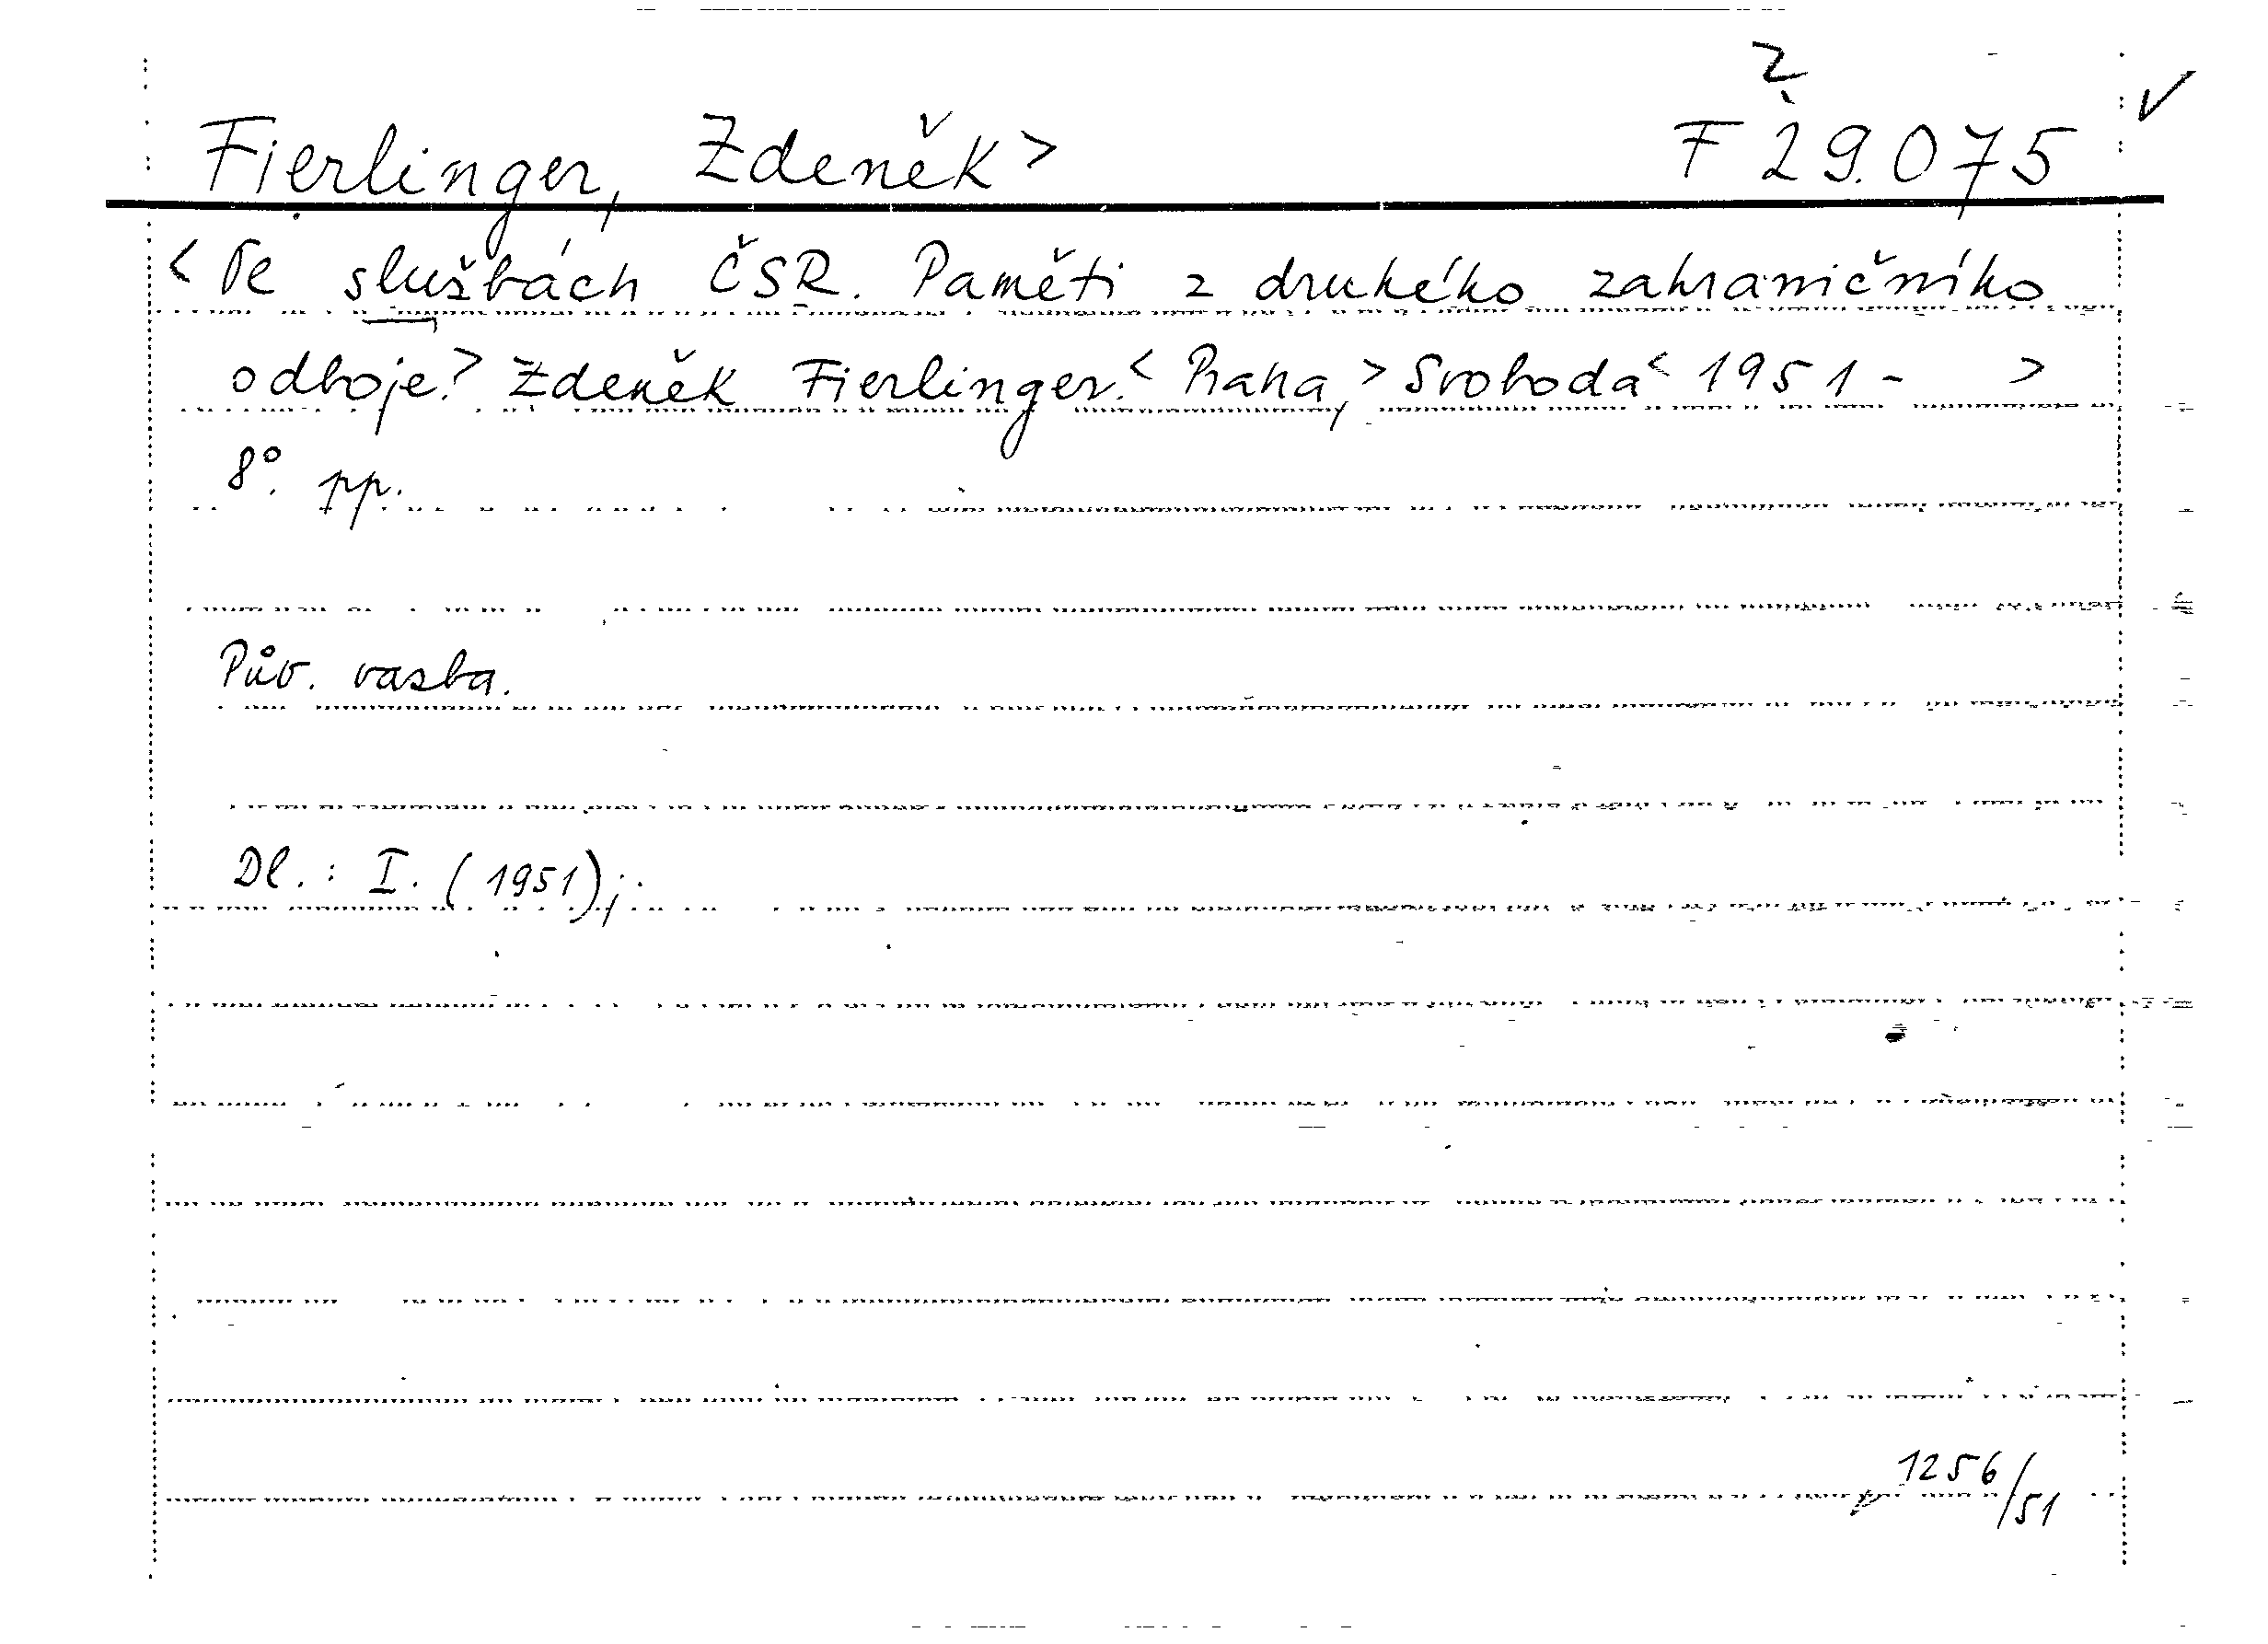 2 ✓
Fierlinger, Zdeněk> F 29.075
<Ve službách ČSR. Paměti z druhého zahraničního
odboje.> Zdeněk Fierlinger.< Praha,> Svoboda< 1951 - >
8°. pp.
Pův. vazba.
Dl.: I. (1951);
1256/51